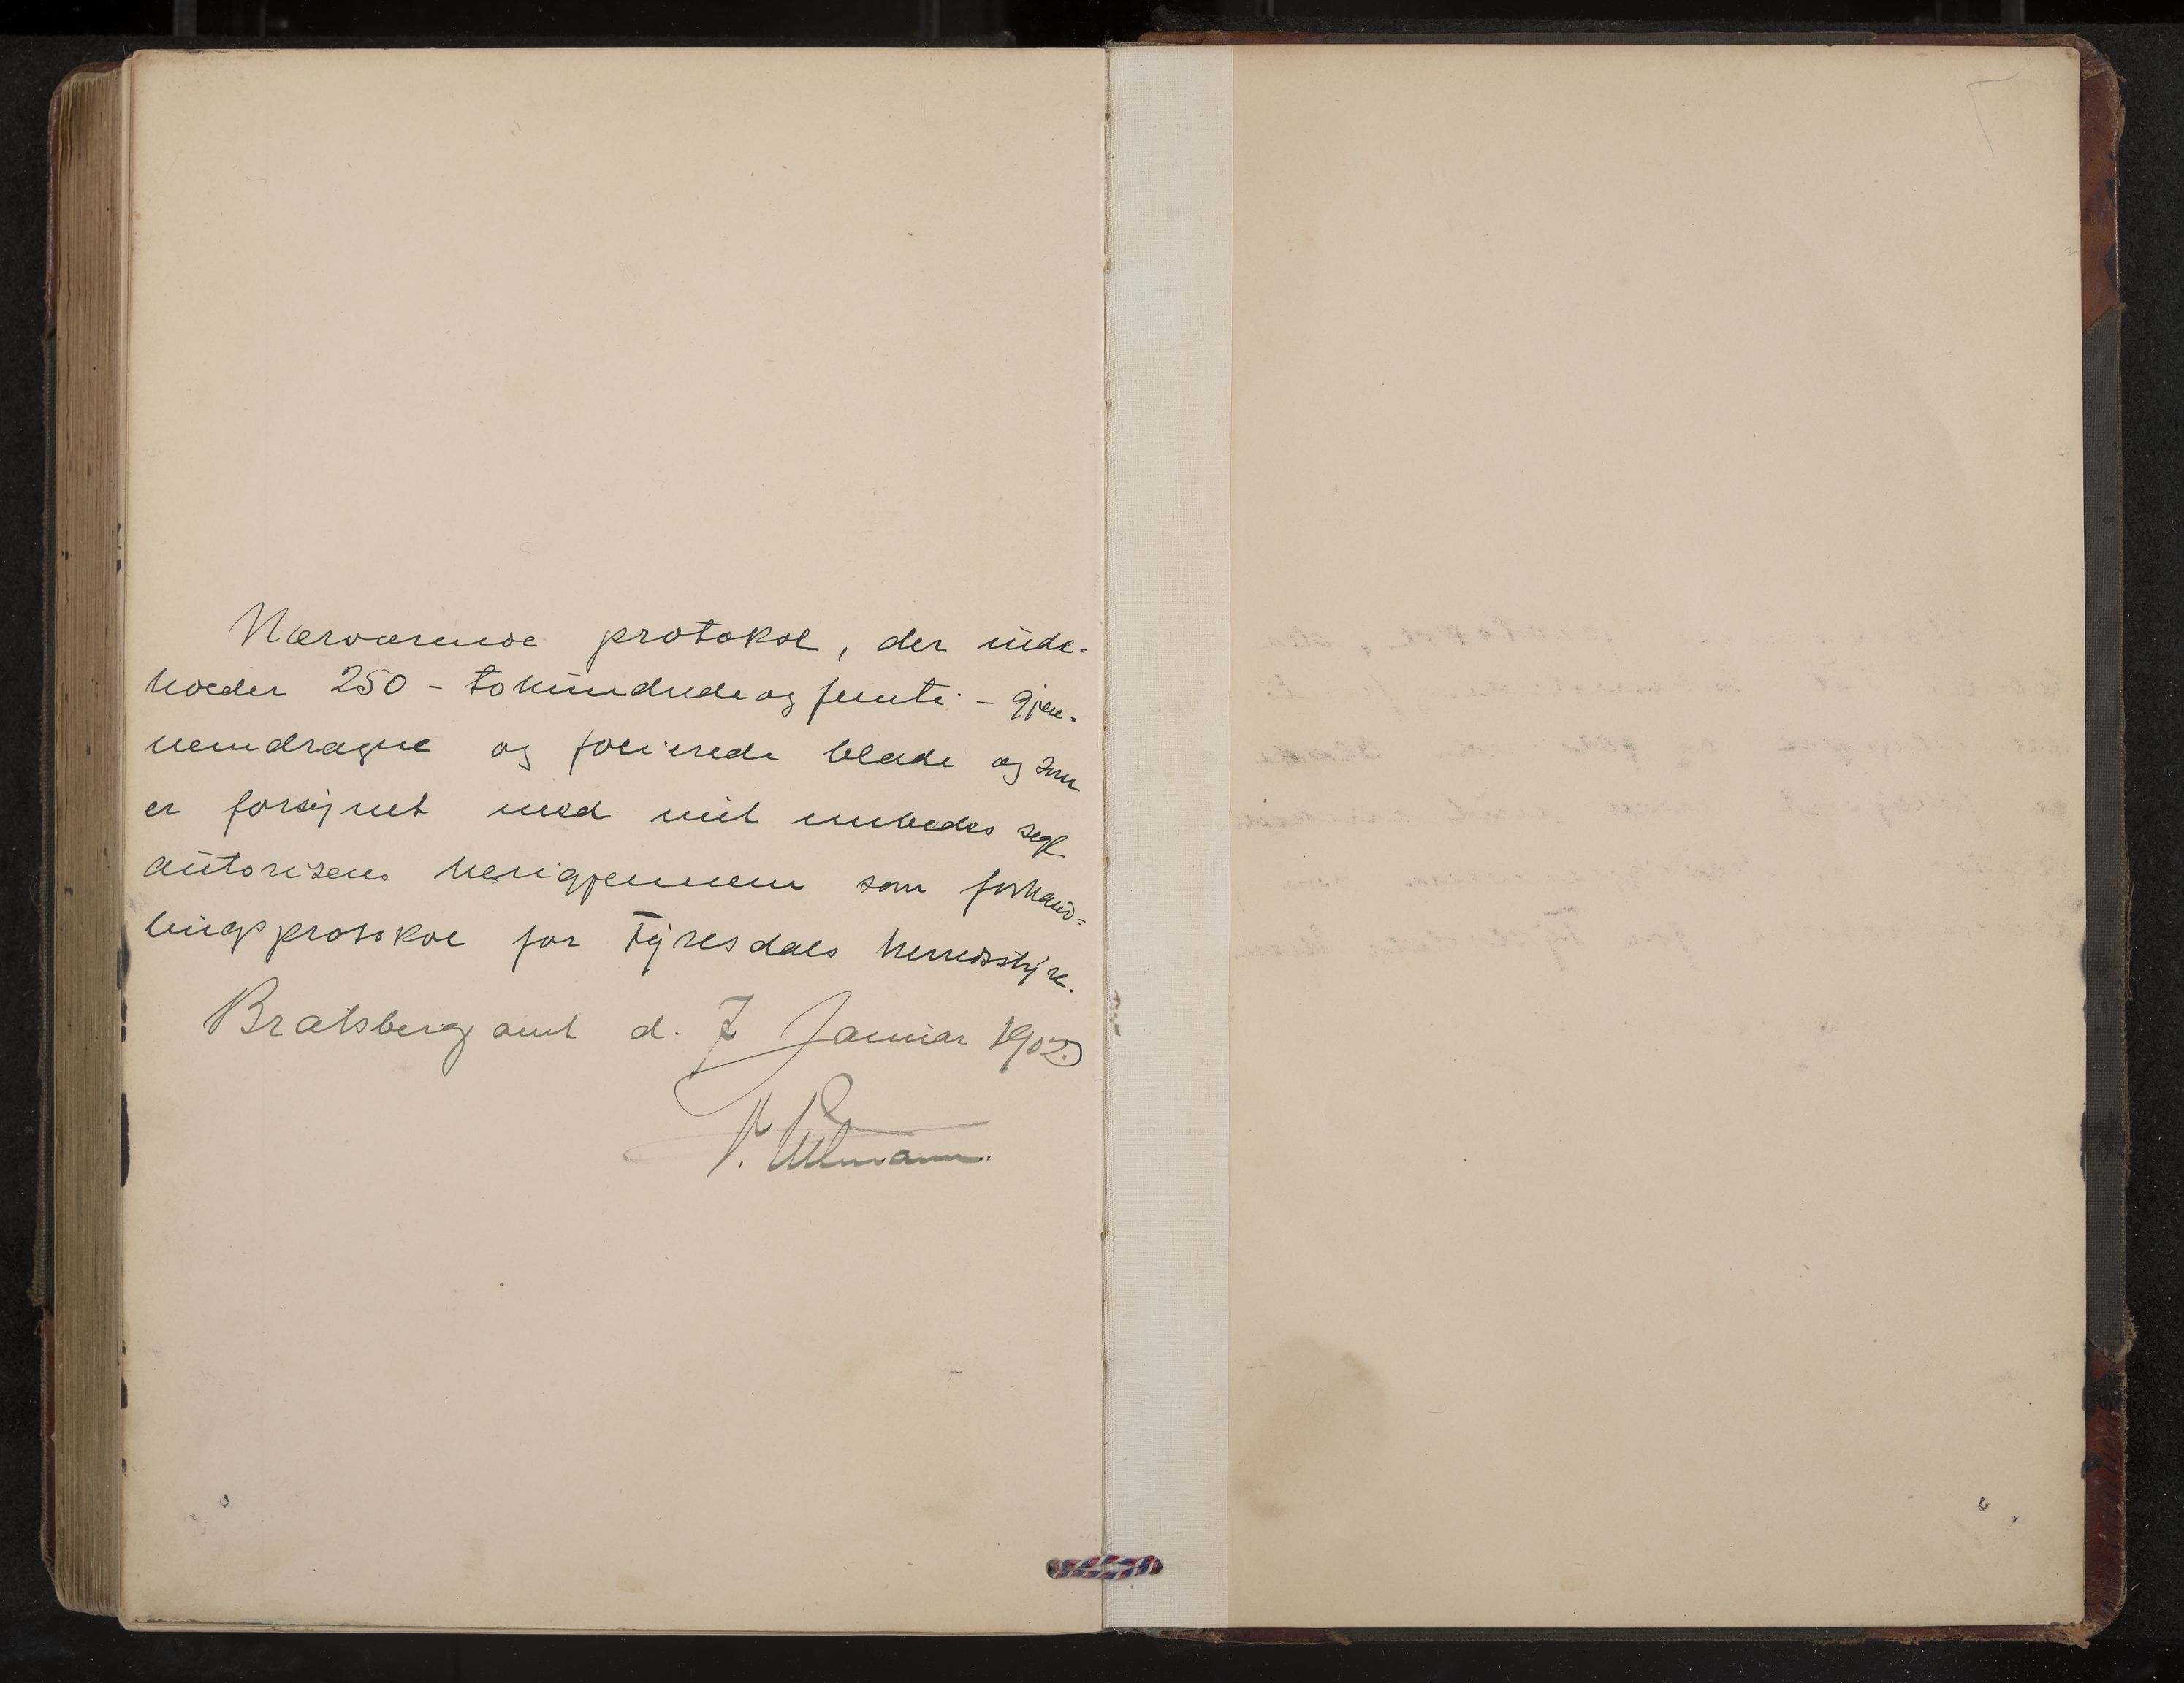 Nærværende protokol, der inde-
holder 250 - tohundrede og femti - gjen-
nemdragne og folierede blade og som
er forsynet med mit embedes segl
autoriseres herigjennem som forhand=
lingsprotokol for Tyresdals herredsstyre.
Bratsberg amt d. 7 Januar 1902
V. Ullmann.